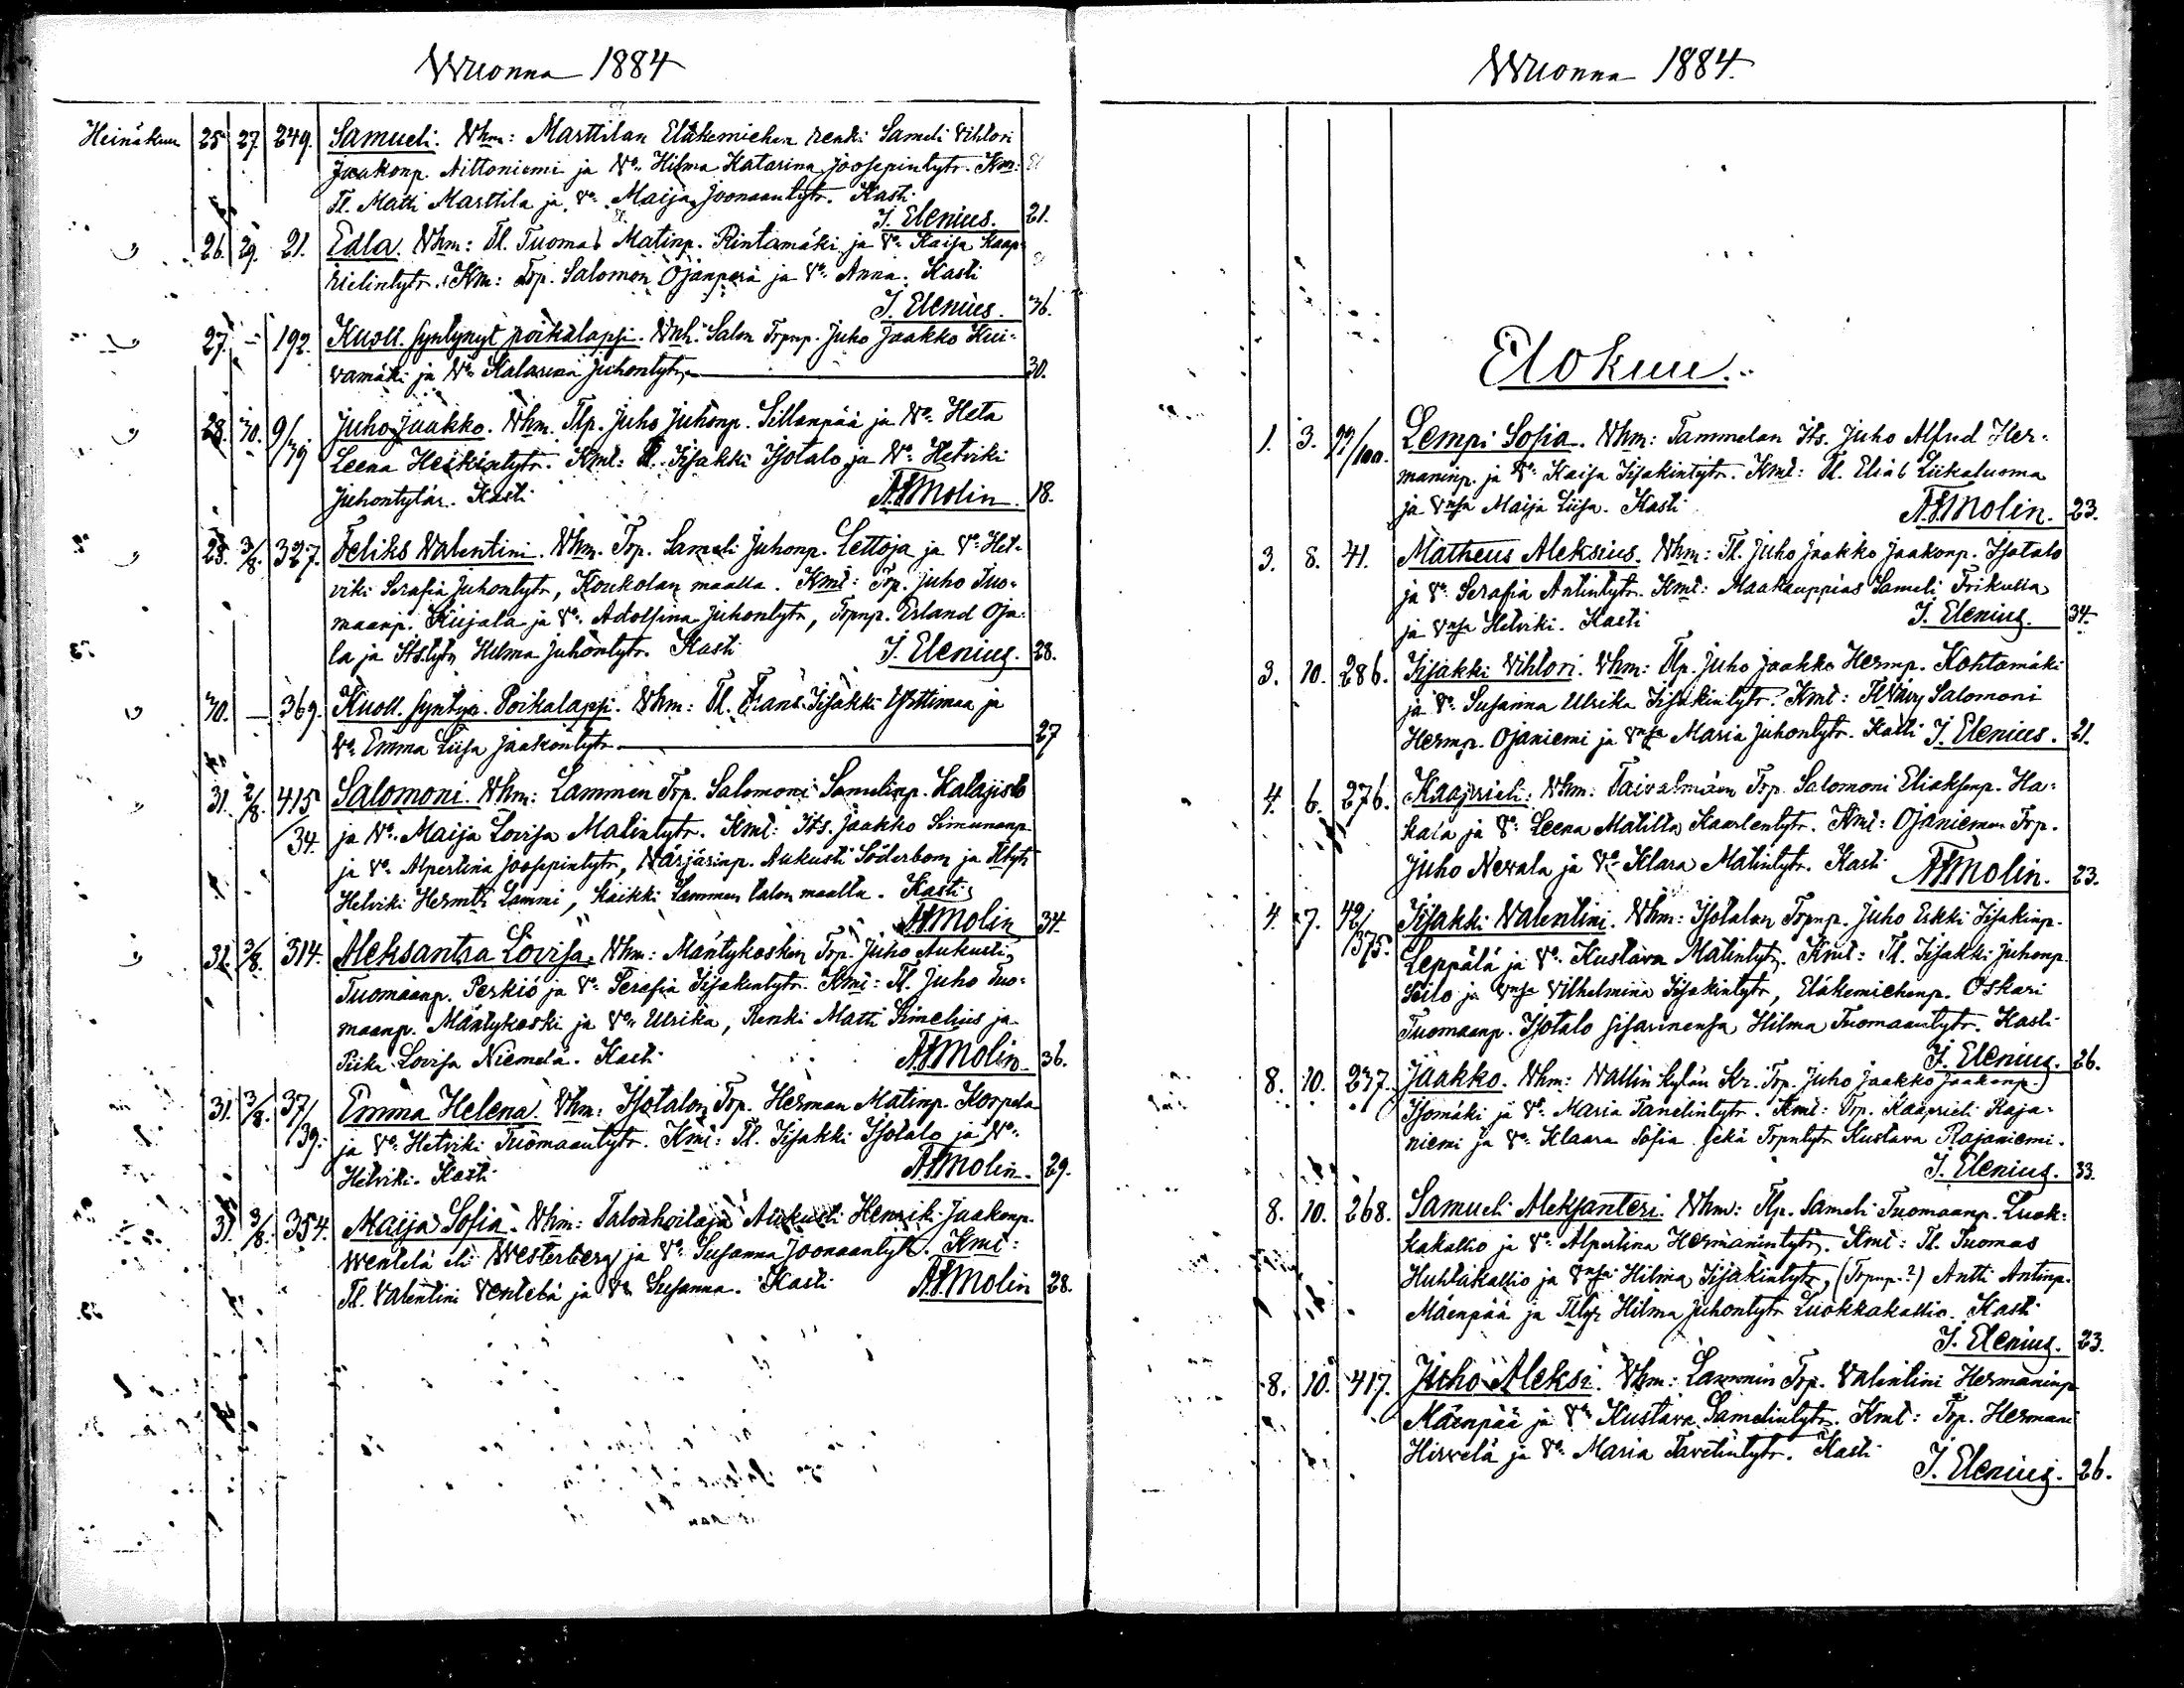 Wuonna 1884
Heinäkuu 25 27 249. Samueli. Vhm: Marttilan Eläkemiehen renki Sameli Vihtori
Jaakonp. Aittoniemi ja Vo. Hilma Katarina Joosepintytr. Km:
Tl. Matti Marttila ja Vo. Maija Joonaantytr. Kasti
J. Elenius. 21.
" 26. 29. 21. Edla. Vhm: Tl. Tuomas Matinp. Rintamäki ja Vo. Kaisa Kaap=
rielintytr. Km: Trp. Salomon Ojanperä ja Vo. Anna. Kasti
J. Elenius. 36.
" 27. - 192. Kuoll. syntynyt poikalapsi. Vnh. Salon Trpnp. Juho Jaakko Kui=
vamäki ja Vo. Katarina Juhontytr. 30.
" 28. 30. 9/79 Juho Jaakko. Vhm. Tlp. Juho Juhonp. Sillanpää ja Vo. Heta
Leena Heikintytr. Kmt: Tl. Iisakki Isotalo ja Vo. Hetviki
Juhontytär. Kasti A.F. Molin. 18.
" 28. 3/8. 327. Feliks Valentini. Vhm. Trp. Sameli Juhonp. Lettoja ja Vo. Het=
viki Serafia Juhontytr, Koukolan maalla. Kmt: Trp. Juho Tuo=
maanp. Kujala ja Vo. Adolfina Juhontytr, Trpnp. Erland Oja=
la ja Its.tytr Hilma Juhontytr. Kasti J. Elenius. 28.
" 30. - 369. Kuoll. syntyn. Poikalapsi. Vhm: Tl. Frans Iisakki Yrttimaa ja
Vo. Emma Liisa Jaakontytr 27
" 31. 2/8. 415/34. Salomoni. Vhm: Lammen Trp. Salomoni Samelinp. Katajisto
ja Vo. Maija Lovisa Matintytr. Kmt: Its. Jaakko Simunanp.
ja Vo. Alpertina Joosepintytr, Värjärinp. Aukusti Söderbom ja Tltytr
Hetviki Hermtr Lammi, Kaikki Lammen talon maalla. Kasti
A.F. Molin 34.
" 31. 3/8. 314. Aleksantra Lovisa. Vhm: Mäntykosken Trp. Juho Aukusti
Tuomaanp. Perkiö ja Vo. Serafia Iisakintytr. Kmt: Tl. Juho Tuo=
maanp. Mäntykoski ja Vo. Ulrika, Renki Matti Simelius ja
Piika Lovisa Niemelä. Kasti A.F. Molin 36.
31. 3/8. 37/39. Emma Helena. Vhm: Isotalon Trp. Herman Matinp. Korpela
ja Vo. Hetviki Tuomaantytr. Kmt: Tl. Iisakki Isotalo ja Vo.
Hetviki. Kasti A.F. Molin. 29.
31. 3/8. 354. Maija Sofia. Vhm: Talonhoitaja Aukusti Henrik Jaakonp.
Wentelä eli Westerberg ja Vo. Susanna Joonaantytr. Kmt:
Tl. Valentini Ventelä ja Vo. Susanna. Kasti A.F. Molin 28.
Wuonna 1884.
Elokuu.
1. 3. 99/100. Lempi Sofia. Vhm: Tammelan Its. Juho Alfred Her=
maninp. ja Vo. Kaisa Iisakintytr. Kmt: Tl. Elias Liikaluoma
ja Vnsa Maija Liisa. Kasti A.F. Molin. 23.
3. 8. 41. Matheus Aleksius. Vhm: Tl. Juho Jaakko Jaakonp. Isotalo
ja Vo. Serafia Antintytr. Kmt: Maakauppias Sameli Frikulla
ja Vnsa Hetviki. Kasti J. Elenius. 34.
3. 10. 286. Iisakki Vihtori. Vhm: Tlp. Juho Jaakko Hermp. Kohtamäki
ja Vo. Susanna Ulrika Iisakintytr. Kmt: Salomoni
Hermp. Ojaniemi ja Vnsa Maria Juhontytr. Kasti J. Elenius. 21.
4. 6. 276. Kaaprieli. Vhm: Taivalmäen Trp. Salomoni Eliaksenp. Ha=
kala ja Vo. Leena Matilta Kaarlentytr. Kmt: Ojaniemen Trp.
Juho Nevala ja Vo. Klara Matintytr. Kasti A.F. Molin. 23.
4. 7. 42/375. Iisakki Valentini. Vhm: Isotalon Trpnp. Juho Erkki Iisakinp.
Leppälä ja Vo. Kustava Matintytr. Kmt: Tl. Iisakki Juhonp.
Seilo ja Vnsa Vilhelmina Iisakintytr, Eläkemiehenp. Oskari
Tuomaanp. Isotalo sisarinensa Hilma Tuomaantytr. Kasti
J. Elenius. 26.
8. 10. 237. Jaakko. Vhm: Vallin kylän Kr. Trp. Juho Jaakko Jaakonp.
Isomäki ja Vo. Maria Tanelintytr. Kmt: Trp. Kaaprieli Raja=
niemi ja Vo. Klaara Sofia sekä Trpntytr Kustava Rajaniemi.
J. Elenius. 33.
8. 10. 268. Samueli Aleksanteri. Vhm: Tlp. Sameli Tuomaanp. Luok=
kakallio ja Vo. Alpertina Hermanintytr. Kmt: Tl. Tuomas
Huhtakallio ja Vnsa Hilma Iisakintytr, (Trpnp.?) Antti Antinp.
Mäenpää ja Tltyr Hilma Juhontytr Luokkakallio. Kasti
J. Elenius. 23.
8. 10. 417. Juho Aleksi. Vhm: Lammin Trp. Valentini Hermaninp
Mäenpää ja Vo. Kustava Samelintytr. Kmt: Trp. Hermani
Hirvelä ja Vo. Maria Tavetintytr. Kasti
J. Elenius. 26.